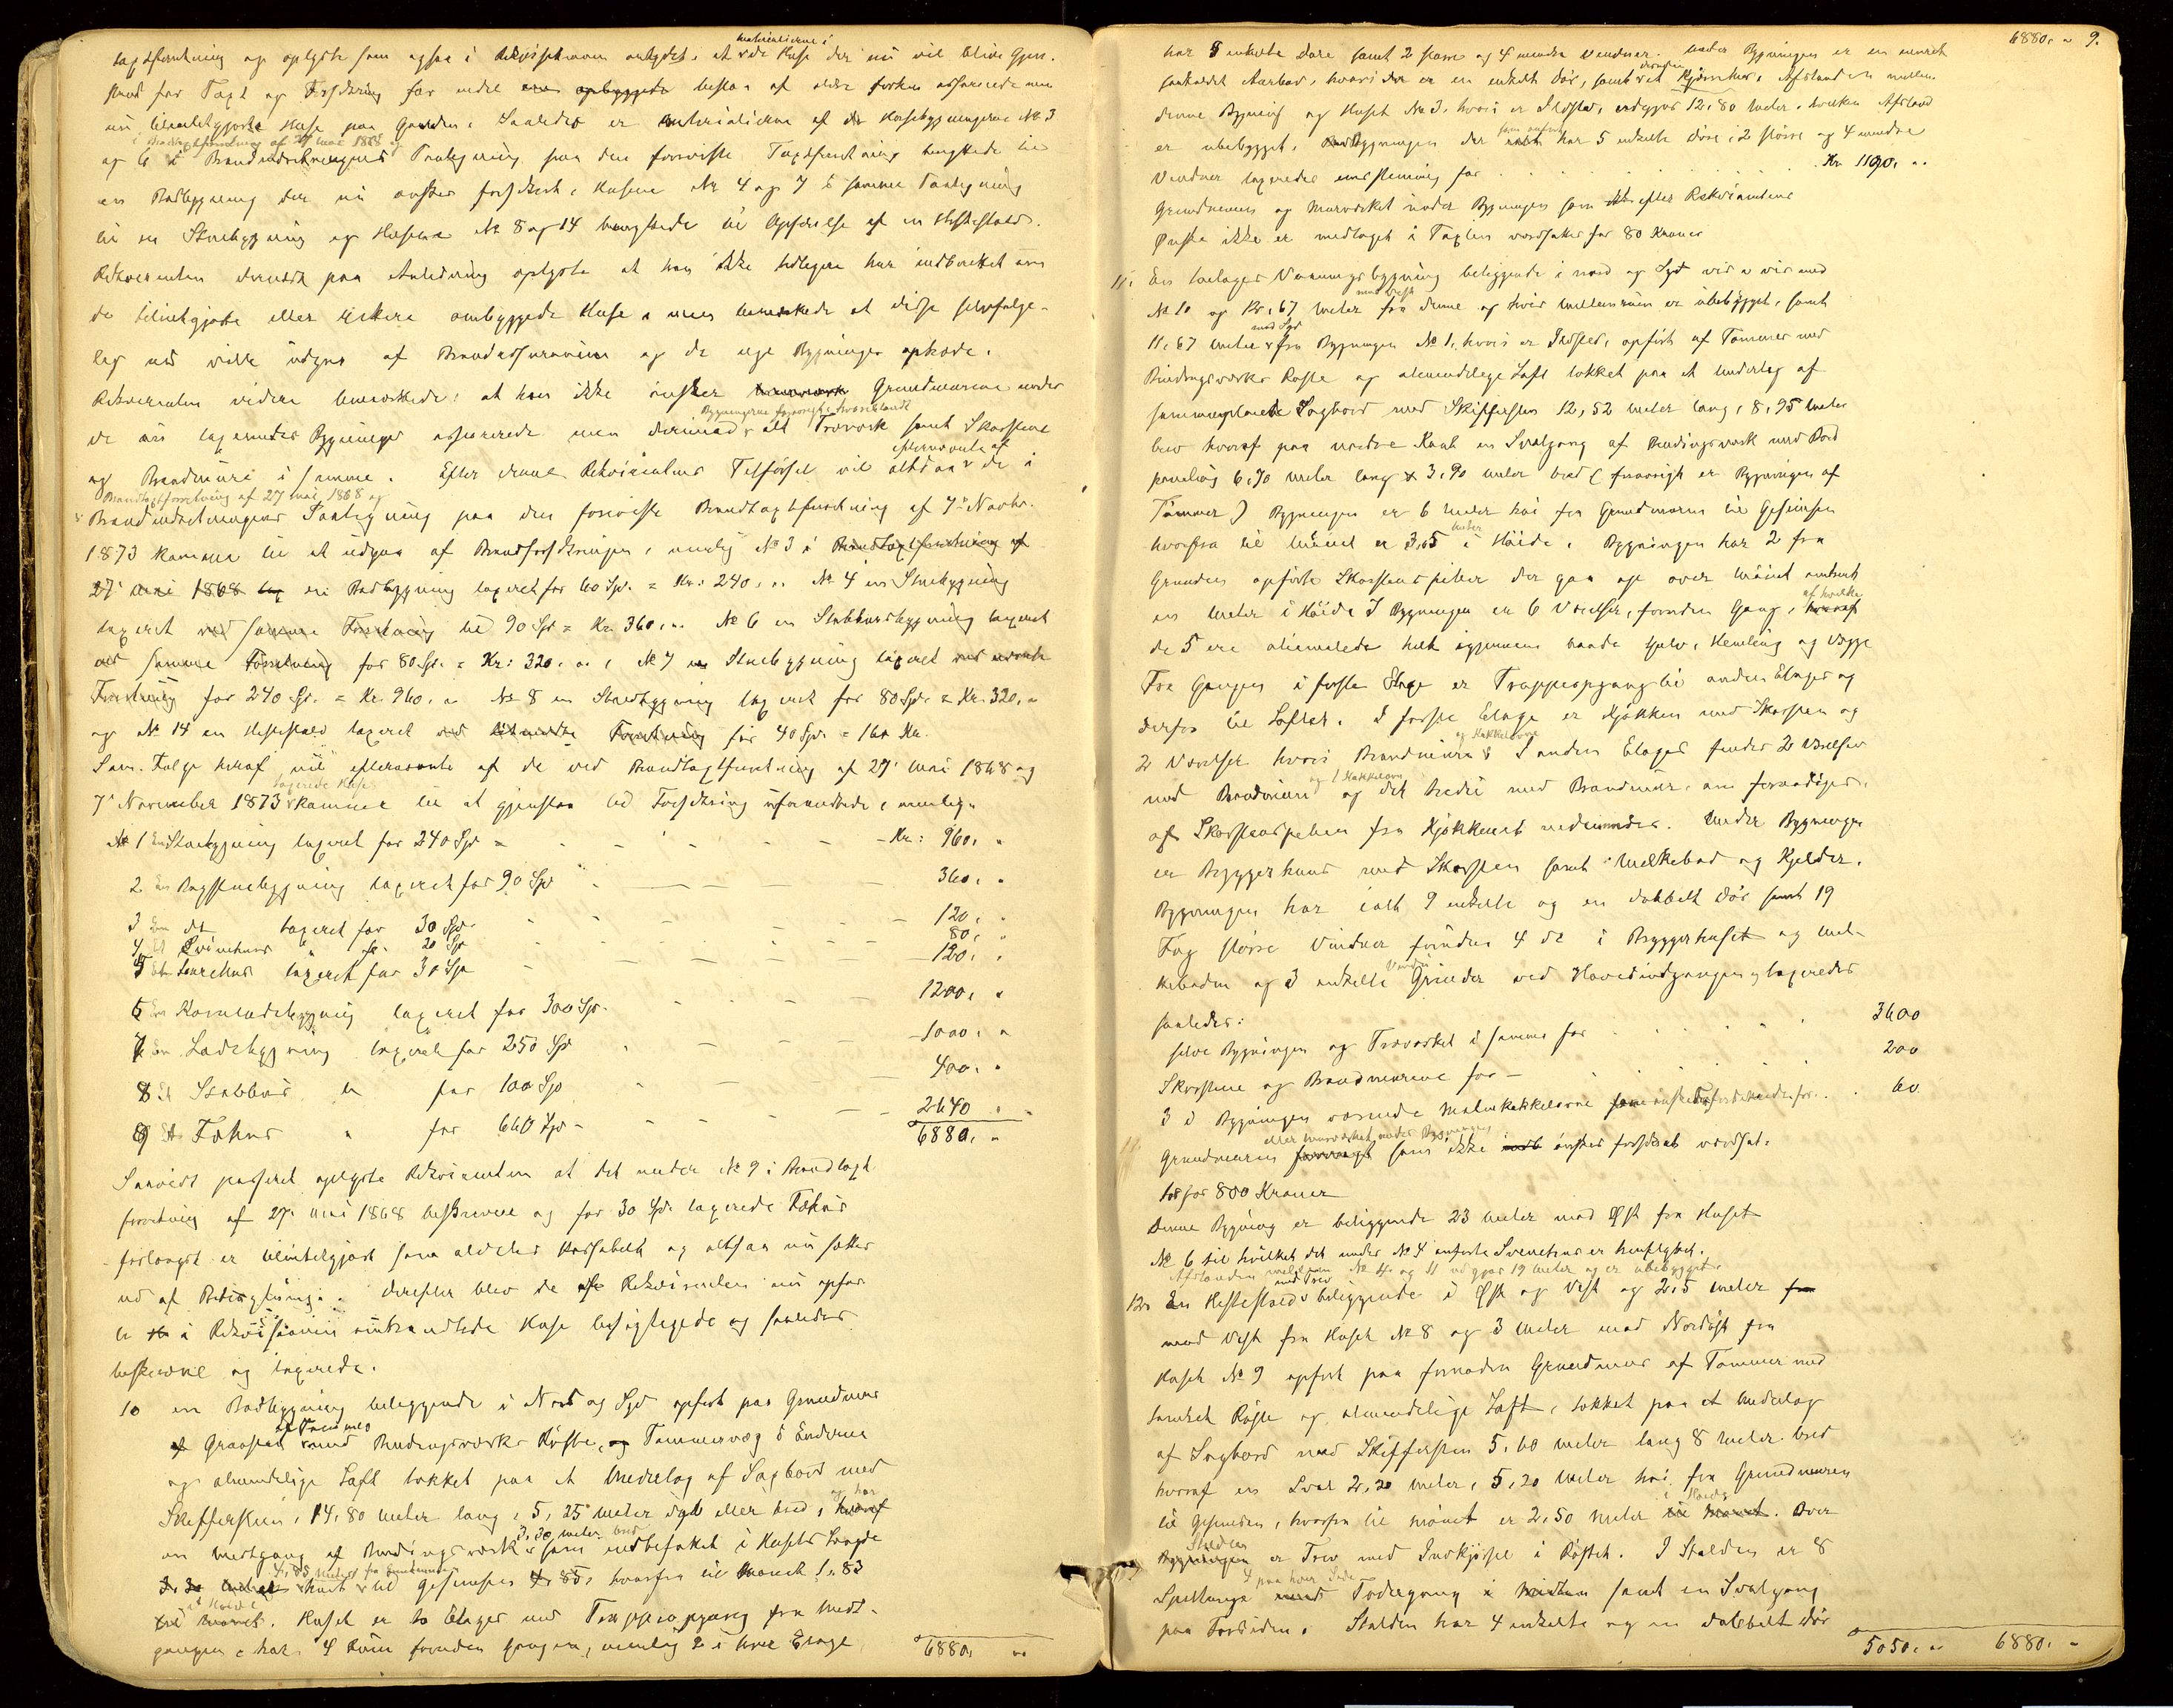 taxtforretning og oplyste som ogsaa i Rekvisitionen antydet, at materialierne i de Huse der nu vil blive Gjen-
stand for Taxt og Forsikring for endel bestaa af ældre forhen assurerede men
nu tilintetgjorte Huse paa Gaarden. Saaledes er materialierne af Husebygningerne № 3
og 6 i Brandtaxtforretning af 27 mai 1868 og Brandindretningens Paategning paa den foreviste Taxtforretning benyttede til
en Bodbygning der nu ønskes forsikret, Husene № 4 og 7 i samme Paategning
til en Stuebygning og Husene № 8 og 14 benyttede til Opførelse af en Hestestald.
Rekvirenten derhos paa Anledning oplyste at han ikke tidligere har indberettet om
de tilintetgjorte eller videre ombyggede Huse, men bemærkede at disse selvfølge-
lig nu ville udgaa af Brandassurancen og de nye Bygninger optræde.
Rekvirenten videre bemærkede: at han ikke ønsker Grundmurene under
de nu taxerendes Bygninger assurerede men derimod Bygningerne forøvrigt, hvoriblandt alt Træværk samt Skorstene
og Brandmure i samme. Efter denne Rekvirentens Tilførsel vil altsaa efternævnte af de i
Brandtaxtforretning af 27 mai 1868 og
Brandindretningens Paategning paa den foreviste Brandtaxtforretning af 7de Novbr.
1873 komme til at udgaa af Brandforsikringen, nemlig № 3 i Brandtaxtforretning af
27 mai 1868 en Bodbygning taxeret for 60 Spd. = Kr: 240. „ № 4 en Stuebygning
taxeret ved samme Forretning til 90 Spd = Kr. 360. „ № 6 en Stabbursbygning taxeret
ved samme Forretning for 80 Spd. = Kr: 320. „ , № 7 en Stuebygning taxeret ved
Forretning for 240 Spd. = Kr. 960. „ № 8 en Stuebygning taxeret for 80 Spd. = Kr. 320. „
og № 14 en Hestestald taxeret ved Forretning for 40 Spd. = 160 Kr.
Som Følge heraf vil efternævnte af de ved Brandtaxtforretning af 27 mai 1868 og
7 November 1873 taxerede Huse komme til at gjenstaa ved Forsikring uforandrede, nemlig:
№ 1 En Stuebygning taxeret for 240 Spd = - - - - - Kr: 960. „
2 En Bagstuebygning taxeret for 90 Spd - - - - 360. „
3 En dt taxeret for 30 Spd - - - - 120. „
4 Et Svinehus „ for 20 Spd - - - - 80. „
5 Et taxeret for 30 Spd - - - - 120. „
6 En Kornladebygning taxeret for 300 Spd. - - - 1200. „
7 En Ladebygning taxeret for 250 Spd - - - 1000. „
8 Et Stabbur „ for 100 Spd - - - 400. „
9 Et Fæhus „ for 660 Spd - - - 2640 „
6880. „
Saavidt passeret oplyste Rekvirenten at det under № 9 i Brandtaxt-
forretning af 27 mai 1868 beskrevne og for 30 Spd. taxerede Fæhus
forlængst er tilintetgjort som aldeles kassabelt og altsaa nu sættes
ud af Betragtning. Derefter blev de af Rekvirenten nu opfør-
te i Rekvisitionen omhandlede Huse besigtigede og saaledes
beskrevne og taxerede.
10 en Bodbygning beliggende i Nord og Syd opført paa Grundmur
af Graasten med Bindingsværks Røste, Tømmervæg i Enderne
og almindelige Taft tækket paa et Underlag af Sagbord med
Skiffersteen, 14,80 meter lang, 5,25 meter dyb eller bred, og har
en Midtgang af Bindingsværk 3,30 meter bred som indbefattet i Husets Længde
4,85 meter fra Grundmuren til Gesimsen 4,85, hvorfra til Mønet 1.83
i Høide. Huset er to Etager med Trappeopgang fra Midt-
gangen, har 4 Rum foruden Gangen, nemlig 2 i hver Etage
6880. „
6880. „ 9.
har 5 enkelte Døre samt 2 større og 4 mindre Vinduer. Under Bygningen er en muret
saakaldet Aarbod, hvori der er en enkelt Dør, samt et Kjørrehus. Afstanden mellem
denne Bygning og Huset № 3, hvori er Ildsted, udgjør 12,80 meter, hvilken Afstand
er ubebygget. Bygningen der som anført har 5 enkelte Døre, 2 større og 4 mindre
Vinduer taxeredes eenstemmig for . . . . . . . Kr 1190. „
Grundmuren og Murværket under Bygningen som efter Rekvirentens
Ønske ikke er medtaget i Taxten værdsattes for 80 Kroner
11. En toetages Vaaningsbygning beliggende i nord og Syd vis a vis med
№ 10 og 18,67 meter mod Vest fra denne og hvis mellemrum er ubebygget, samt
11,67 meter mod Syd fra Bygningen № 1, hvori er Ildsted, opført af Tømmer med
Bindingsværks Røste og almindelige Taft tækket paa et Underlag af
sammenpløiede Sagbord med Skiffersten 12,52 meter lang, 8,95 meter
bred hvoraf paa nordre Kant en Svalgang af Bindingsværk med Bord
paneling 6,70 meter lang & 3,90 meter bred (forøvrigt er Bygningen af
Tømmer) Bygningen er 6 meter høi fra Grundmuren til Gesimsen
hvorfra til Mønet er 3,65 meter i Høide. Bygningen har 2 fra
Grunden opførte Skorstenspiber der gaa op over Mønet omtrent
en meter i Høide I Bygningen er 6 Værelser, foruden Gang, af hvilke
de 5 ere oliemalede helt igjennem baade Gulv, Himling og Vægge
Fra Gangen i første Etage er Trappeopgang til anden Etage og
derfra til Loftet. I første Etage er Kjøkken med Skorsten og
2 Værelser hvori Brandmure og Kakkelovne I anden Etage findes 2 Værelser
med Brandmure og 1 Kakkelovn og det tredie med Brandmur, om foraarsages
af Skorstenspiben fra Kjøkkenet nedenunder. Under Bygningen
er Bryggerhuus med Skorsten samt Melkebod og Kjelder.
Bygningen har ialt 9 enkelte og en dobbelt Dør samt 19
Fag større Vinduer foruden 4 dt i Bryggerhuset og Mel-
keboden og 3 enkelte Vindu Grinder ved Hovedindgangen, taxeredes
saaledes:
selve Bygningen og Træværket i samme for . . . . . 3600
Skorstene og Brandmurene for - . . . . 200
3 i Bygningen værende Malmkakkelovne . . 60
Grundmuren eller Murværket under Bygningen som ikke ønskes forsikret værdsat-
tes for 800 Kroner
Denne Bygning er beliggende 23 meter mod Øst fra Huset
№ 6 til hvilket det under № 4 anførte Svinehus er henflyttet.
Afstanden mellem № 4 og 11 udgjør 19 meter og er ubebygget.
12. En Hestestald med Trev beliggende i Øst og Vest og 2,5 meter
mod Vest fra Huset № 8 og 3 meter mod Nordøst fra
Huset № 9 opført paa fornøden Grundmur af Tømmer med
tømret Røste og almindelige Taft, tækket paa et Underlag
af Sagbord med Skiffersten 5,60 meter lang 8 meter bred
hvoraf en Sval 2,20 meter, 5,20 meter høi fra Grundmuren
til Gesimsen, hvorfra til Mønet er 2,50 meter i Høide. Over
Stalden er Trev med Indkjørsel i Røstet. I Stalden er 8
Spiltouge 4 paa hver Side Fodergang samt en Svalgang
paa Forsiden. Stalden har 4 enkelte og en dobbelt Dør
5050. „ 6880. „